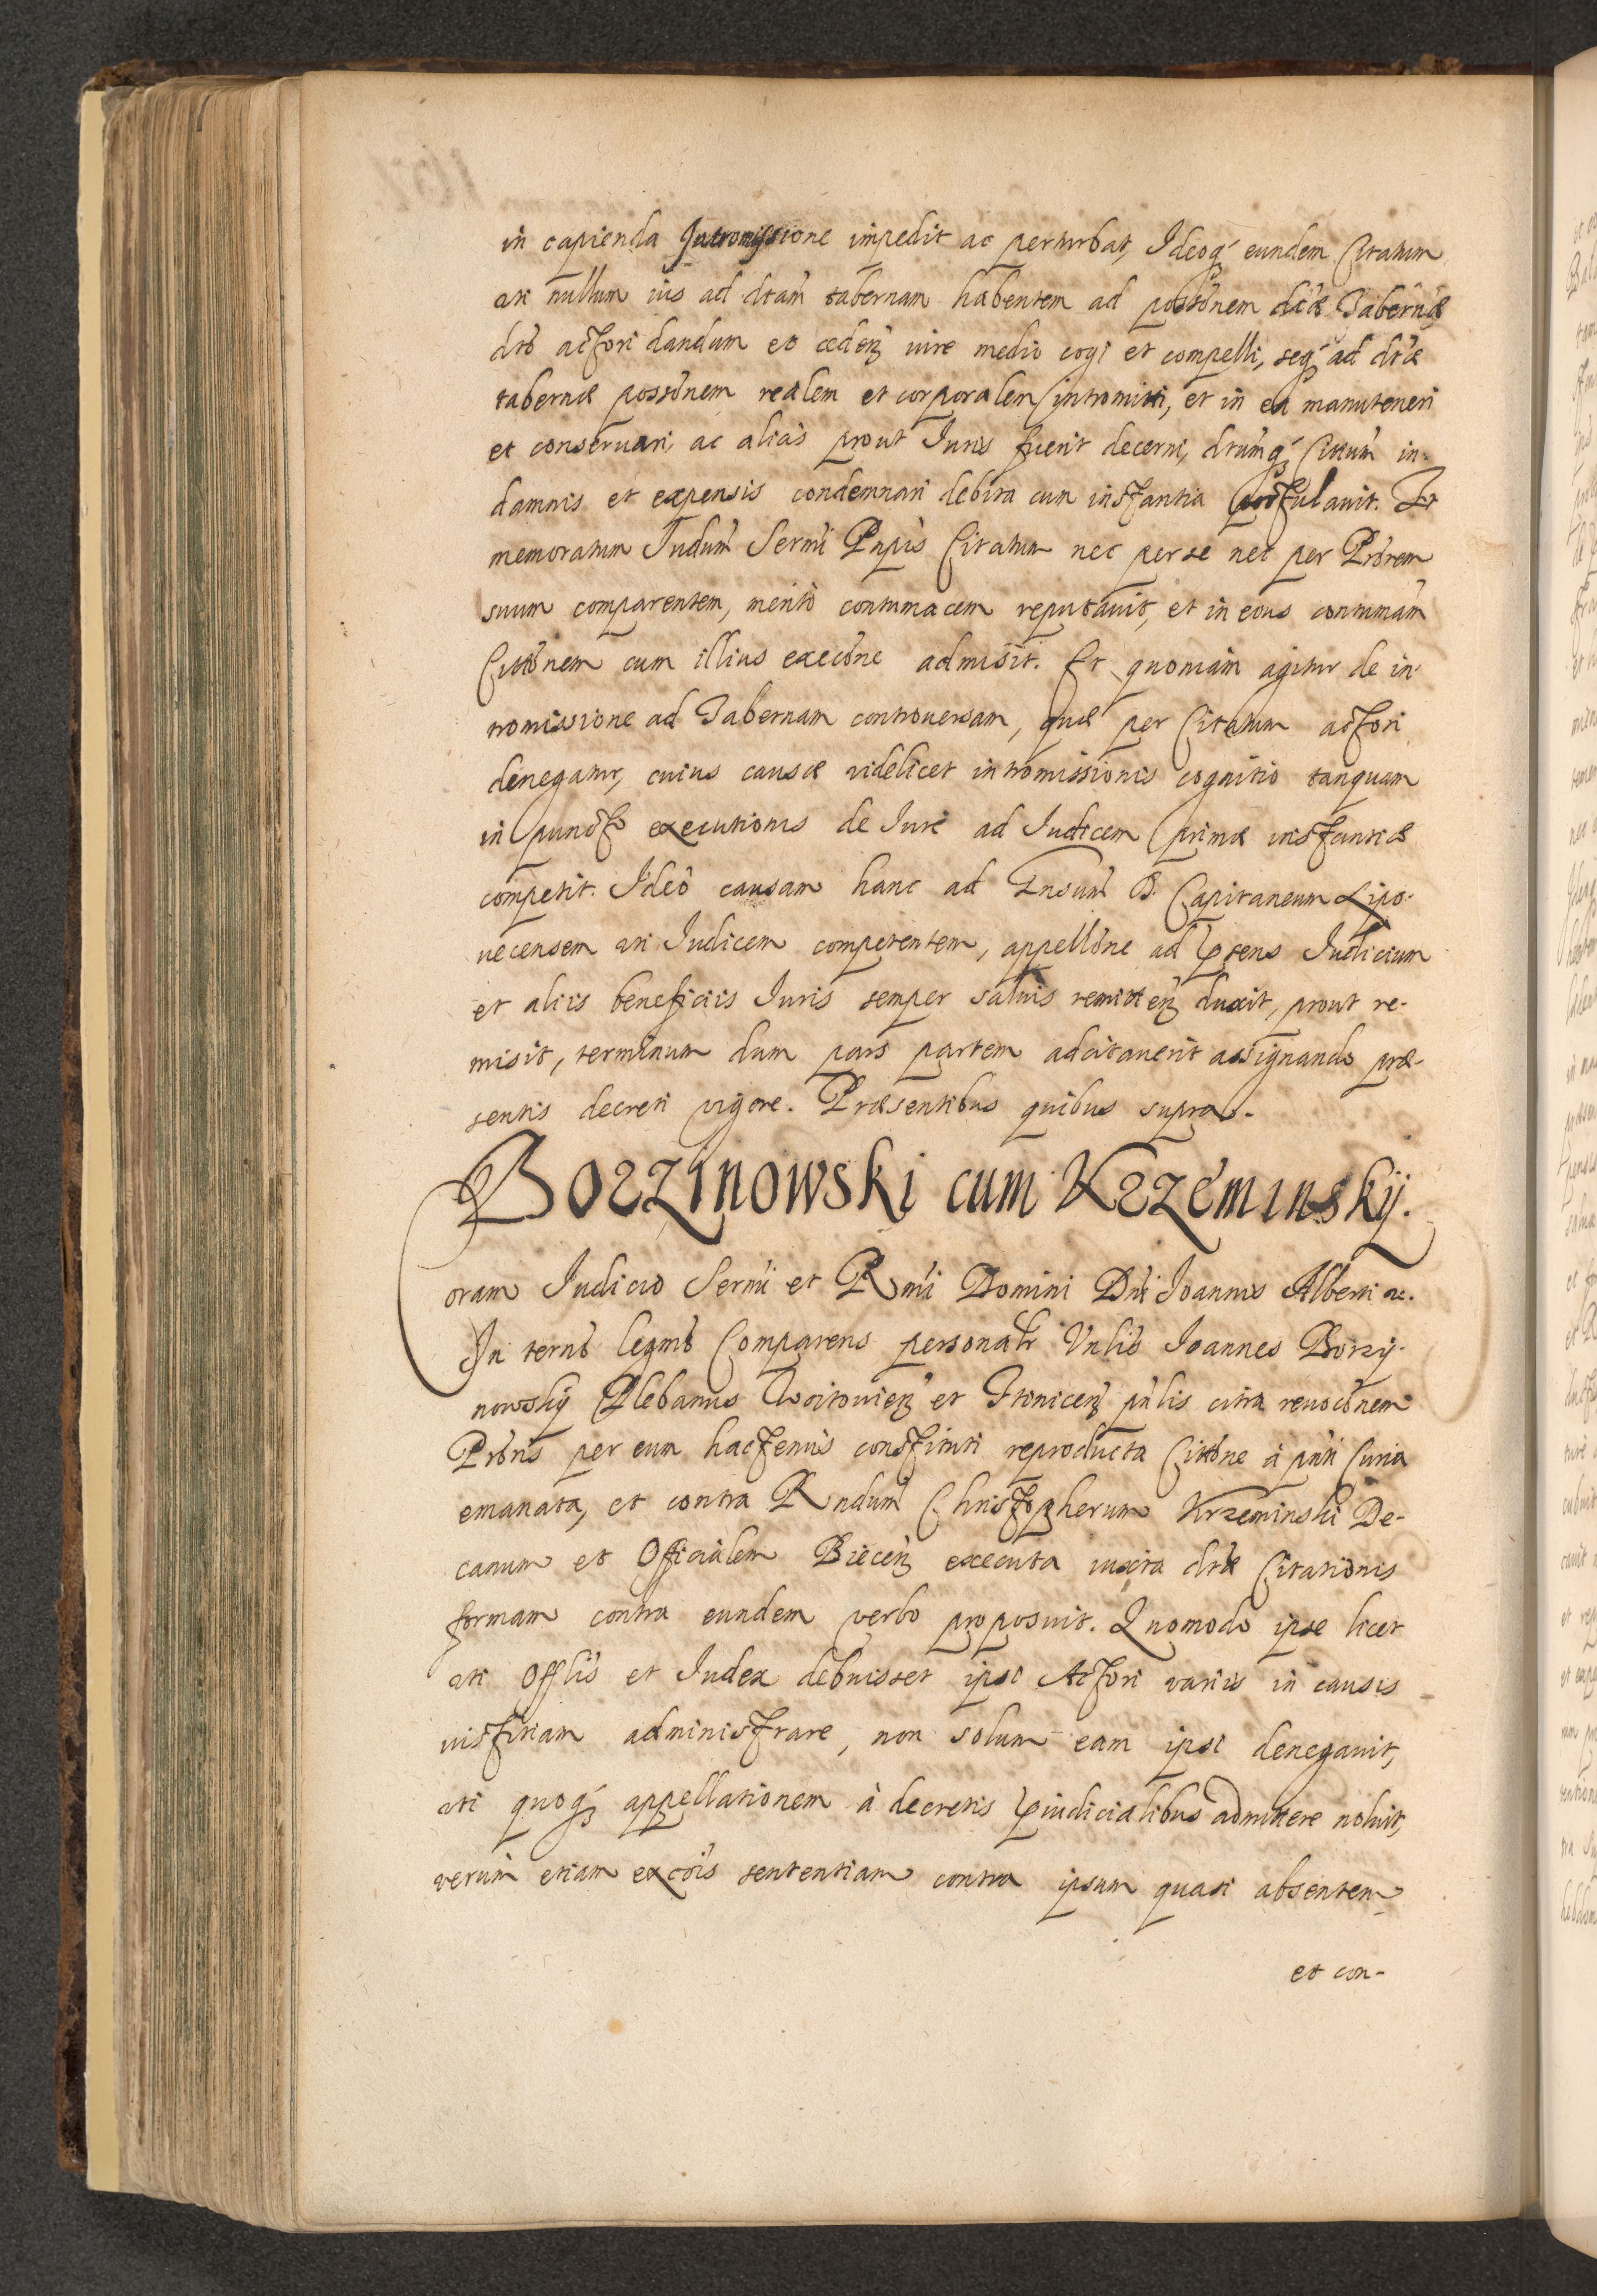 in capienda Intromissione impedit ac perturbat, Ideoq́ eundem Citatum
uti nullum ius ad dtam tabernam habentem ad possonem dctæ Tabernæ
dto actori dandum et cedeñ iure medio cogi et compelli, seq́ ad dtæ
tabernæ possonem realem et corporalem intromitti, et in ea manuteneri
et conseruari, ac alias prout Iuris fuerit decerni, dtumq́ Cittum in
damnis et expensis condemnari debita cum instantia postulauit. Et
memoratum Iudum Sermi Pnpis Citatum nec per se nec per Prorem
suum comparentem, meritò contumacem reputauit, et in eous contumam
Cittonem cum illius execõne admisit. Et quoniam agitur de in-
tromissione ad Tabernam controuersam, quæ per Citatum actori
denegatur, cuius causæ videlicet intromissionis cognitio tanquam
in puncto executionis de Iure ad Iudicem primæ instantiæ
competit. Ideò causam hanc ad Insum D. Capitaneum Lipo-
uecensem uti Iudicem competentem, appellone ad psens Iudicium
et aliis beneficiis Iuris semper saluis remitteñ duxit, prout re-
misit, terminum dum pars partem adcitauerit assignando præ-
sentis decreti vigore. Præsentibus quibus supra.
Borzinowski cum Krzeminskij.
Coram Iudicio Sermi et Rmi Domini Dni Ioannis Alberti etc.
In termo legmo Comparens personalr Vnlis Ioannes Borzy-
nowskij Plebanus Woitouieñ et Itiniceñ pnlis citra reuocõnem
Proris per eum hactenus constituti reproducta Cittone à pnti Curia
emanata, et contra Rndum Christopherum Krzeminski De-
canum et Officialem Bieceñ executa iuxta dtæ Citationis
formam contra eundem verbo proposuit. Quomodo ipse licet
uti Offlis et Iudex debuisset ipsi Actori variis in causis
iustitiam administrare, non solum eam ipsi denegauit,
uti quoq́ appellationem à decretis piudicialibus admittere noluit,
verum etiam excõis sententiam contra ipsum quasi absentem
et con-